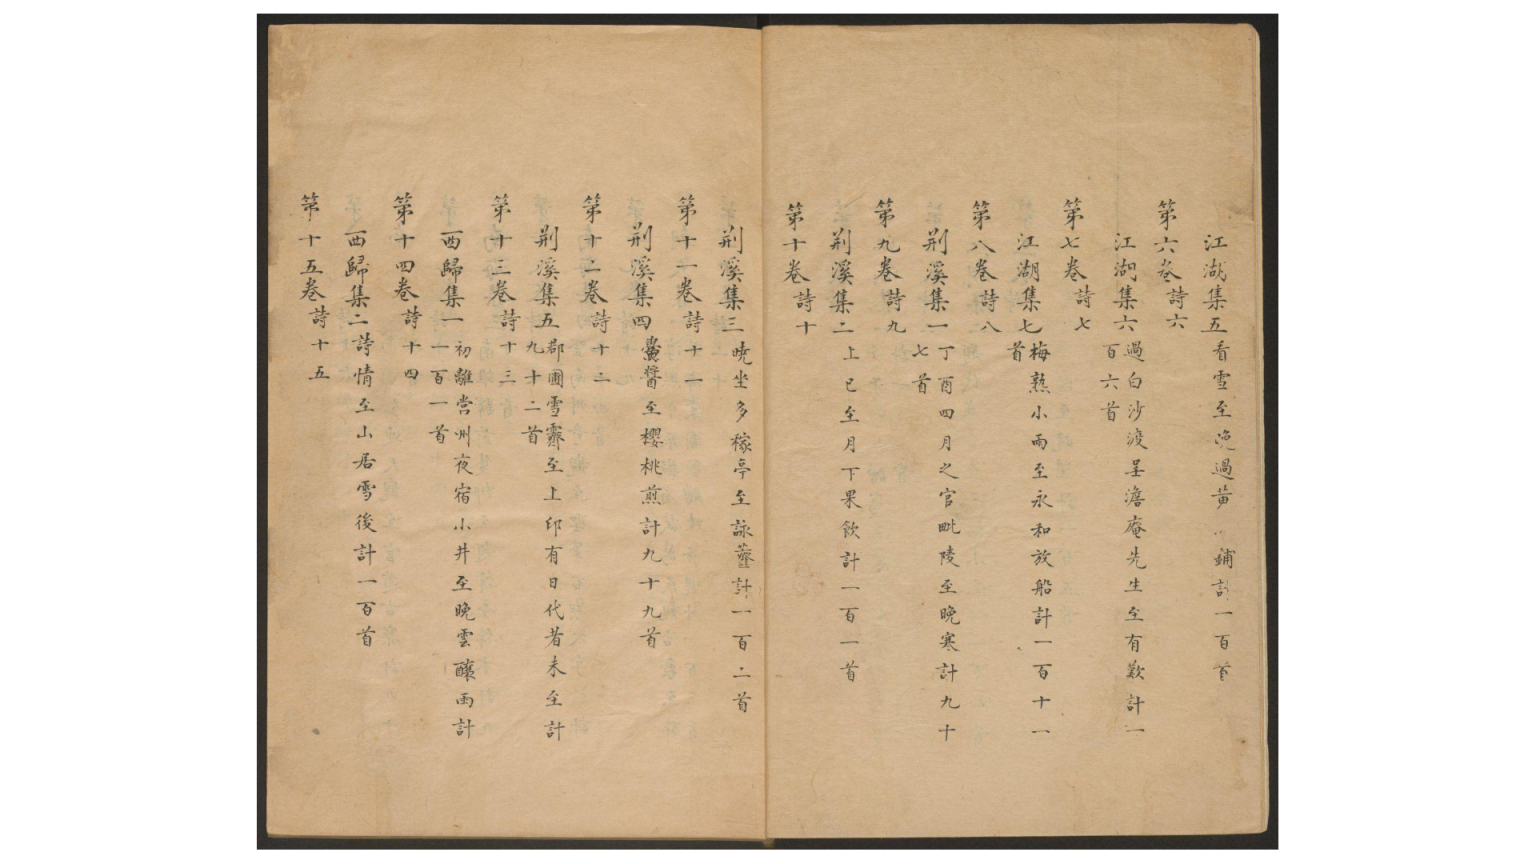 江湖集五看雪至晚過黄鋪計一百首
第六卷詩六
江湖集六過白沙渡呈澹庵先生至有歎計一
百六首
第七卷詩七
江湖集七梅熟小雨至永和放船計一百十一
首
第八卷詩八
荆溪集一丁酉四月之官毗陵至晚寒計九十
七首
第九卷詩九
荆溪集二上巳至月下果飲計一百一首
第十卷詩十
荆溪集三曉坐多稼亭至詠虀計一百二首
第十一卷詩十一
荆溪集四蠆醬至櫻桃煎計九十九首
第十二卷詩十二
荆溪集五郡圃雪霽至上印有日代者未至計
九十二首
第十三卷詩十三
西歸集一初離常州夜宿小井至晚雲釀雨計
一百一首
第十四卷詩十四
西歸集二詩情至山居雪後計一百首
第十五卷詩十五